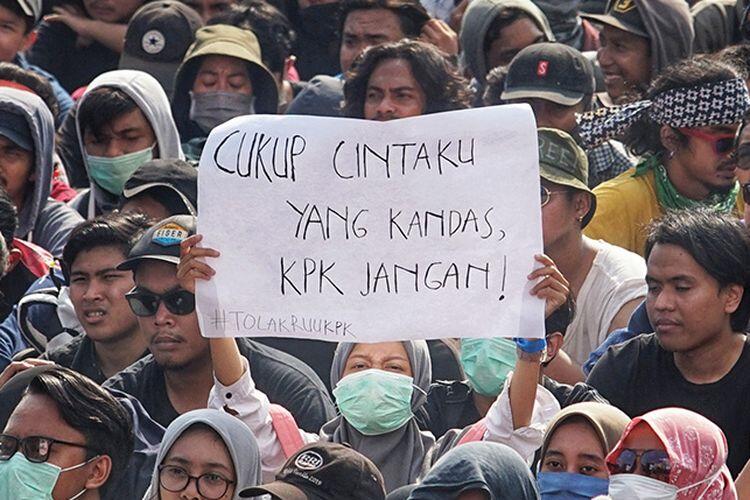 CUKUP CINTAKU
YANG KANDAS,
KPK JANGAN!
#TOLAKRUUKPK
EIGER